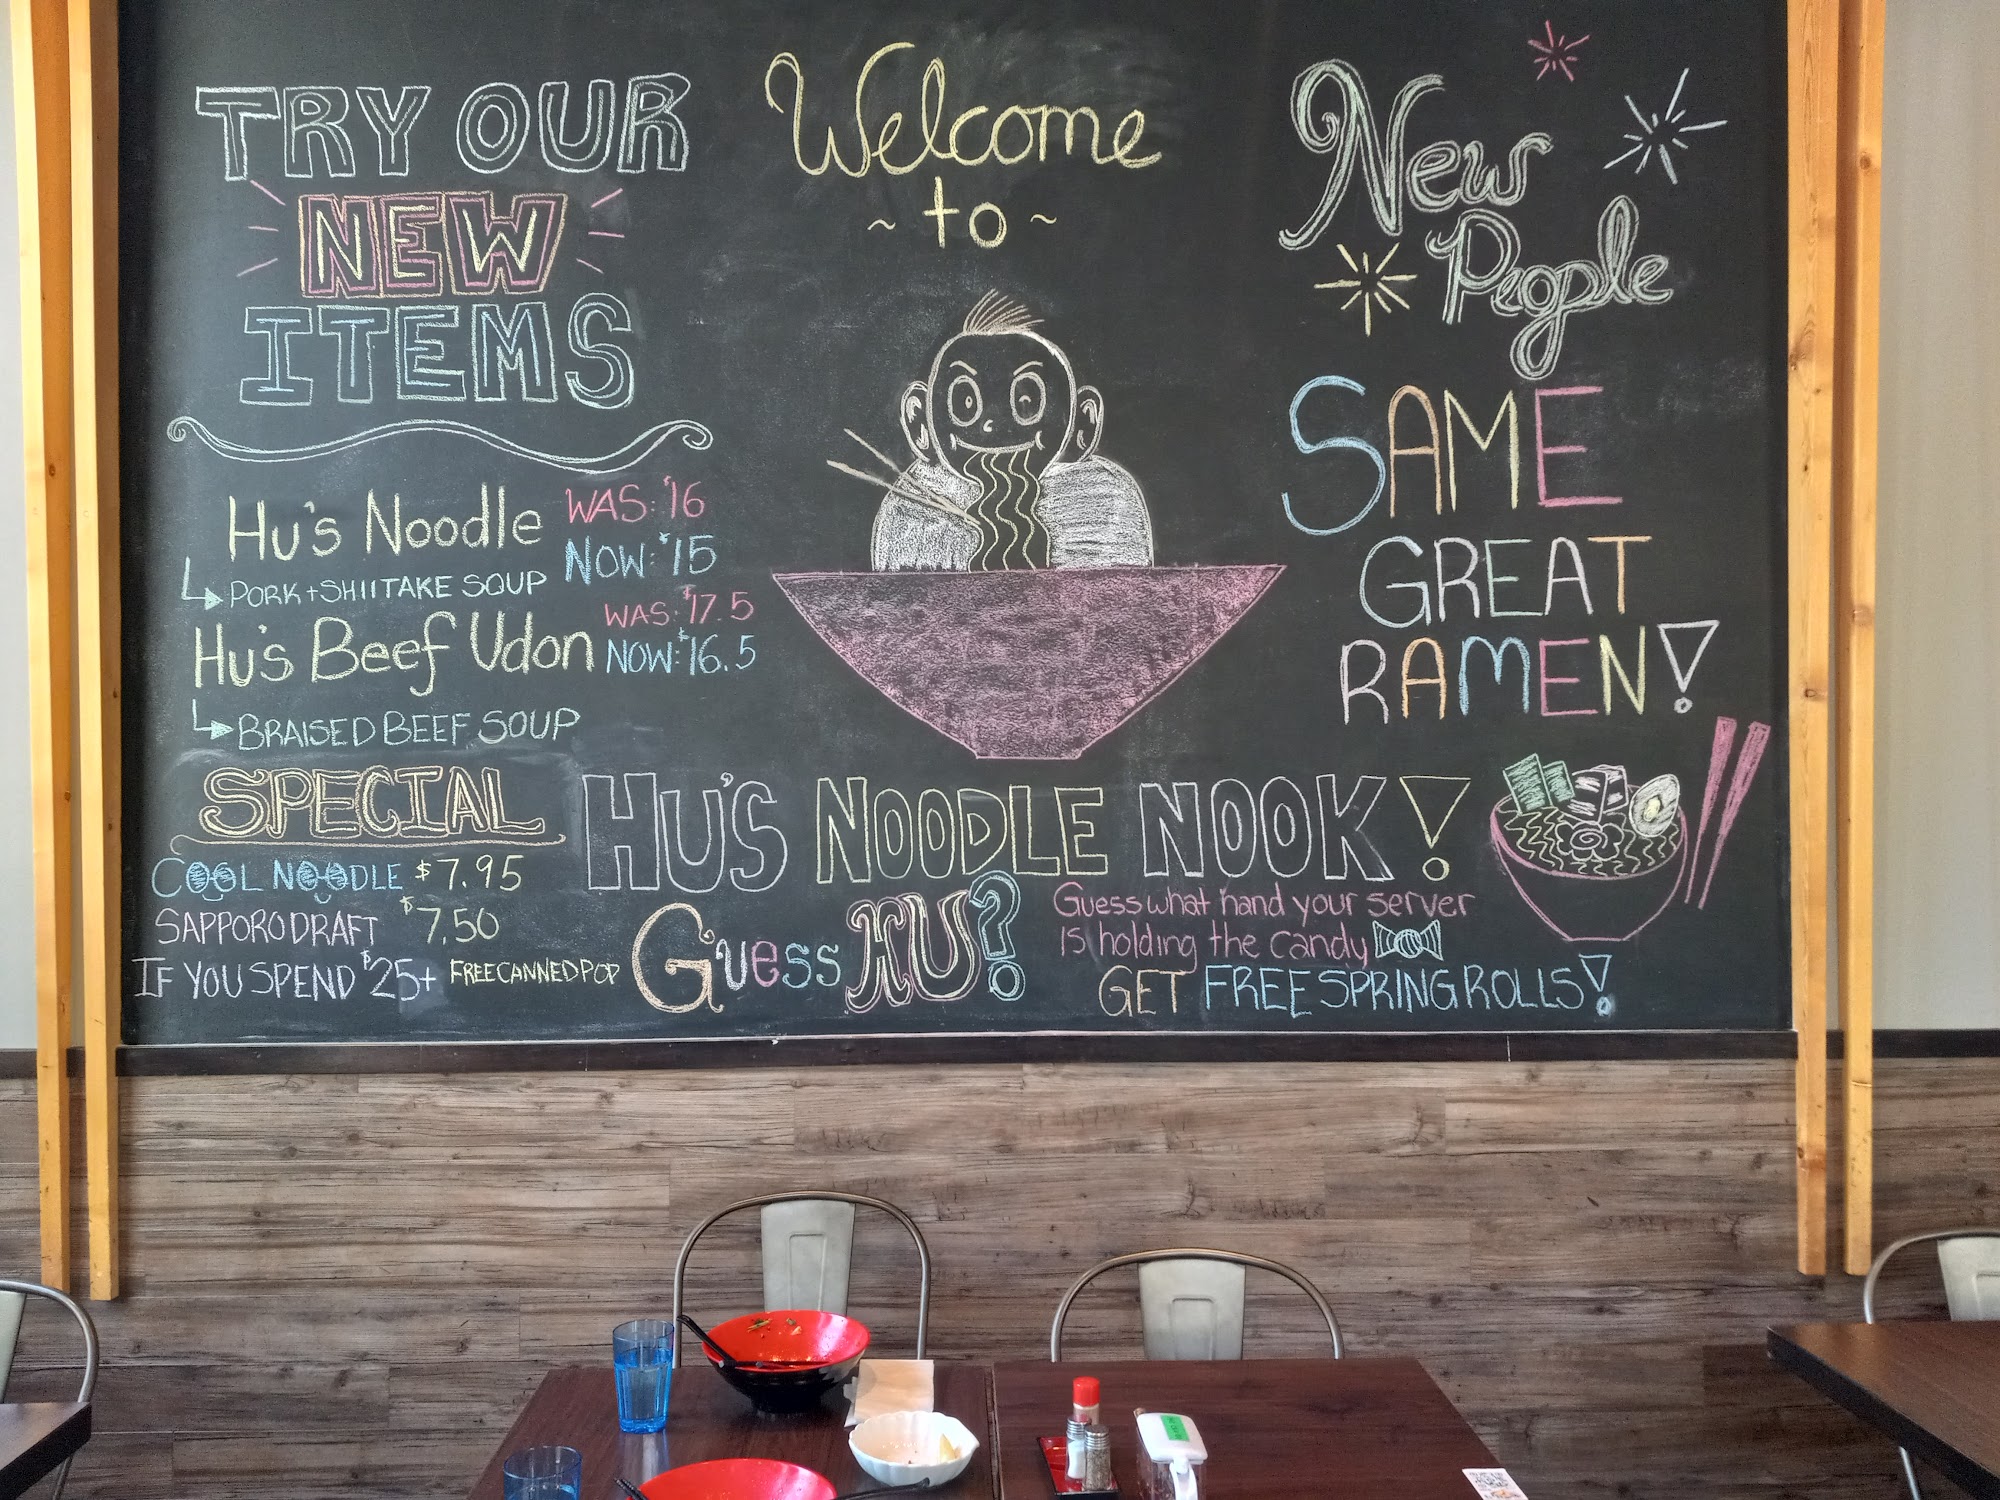 TRY OUR
NEW
ITEMS
Hu's Noodle WAS: $16
NOW: $15
PORK + SHIITAKE SOUP
Hu's Beef Udon WAS: $17.5
NOW: $16.5
BRAISED BEEF SOUP
SPECIAL
COOL NOODLE $7.95
SAPPORO DRAFT $7.50
IF YOU SPEND $25+ FREE CANNED POP
Welcome
~ to ~
HU'S NOODLE NOOK!
Guess HU?
Guess what hand your server
is holding the candy
GET FREE SPRING ROLLS!
New
People
SAME
GREAT
RAMEN!